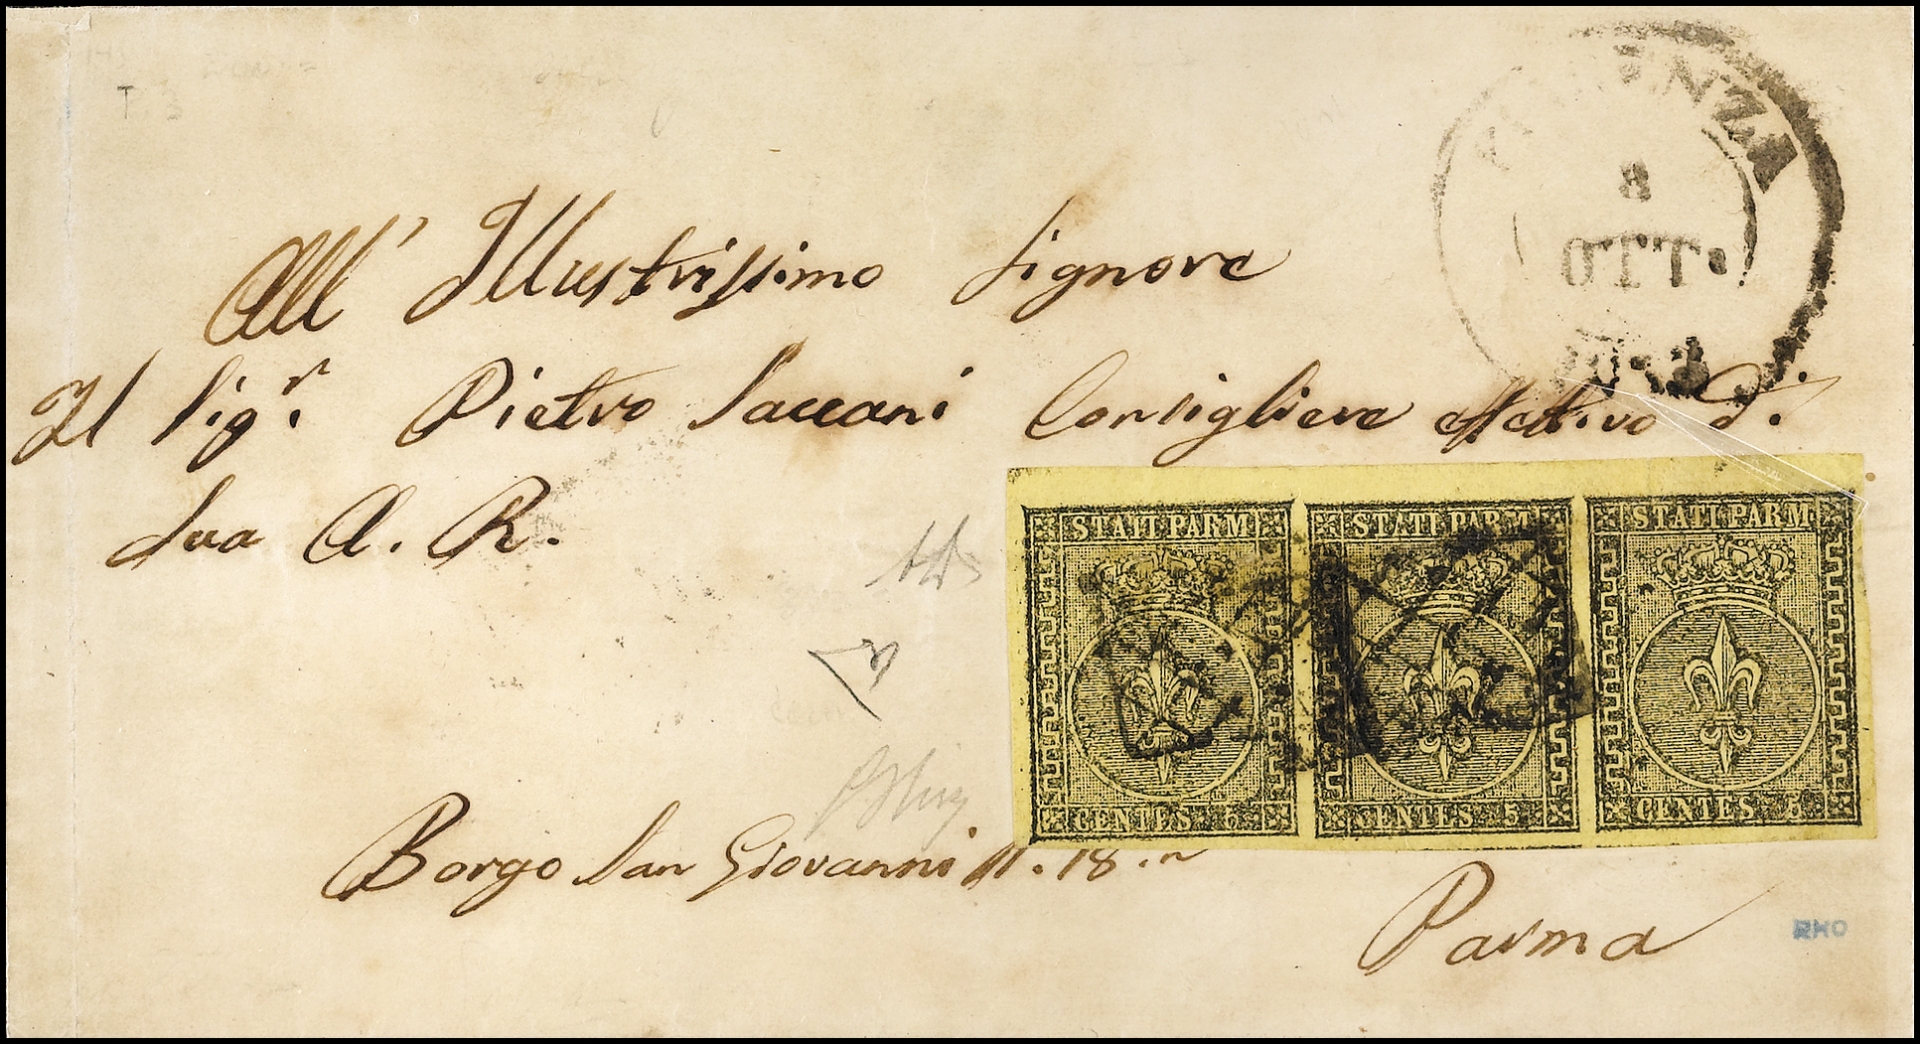 PIACENZA
8
OTT.
All' Illustrissimo Signore
Il Sig.r Pietro Saccani Consigliere effettivo di
Sua A. R.
STATI PARM STATI PARM STATI PARM
CENTES. 5 CENTES. 5 CENTES. 5
Borgo San Giovanni N. 18.
Parma
RHO